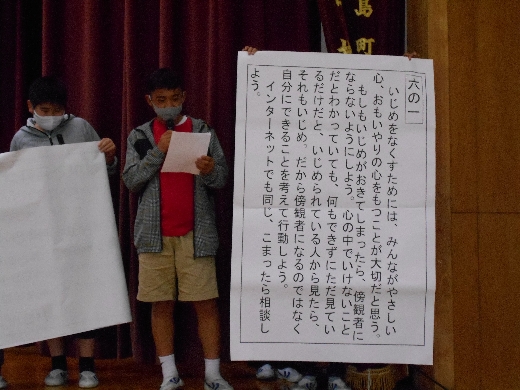 島町
六の一
いじめをなくすためには、みんながやさしい
心、おもいやりの心をもつことが大切だと思う。
もしもいじめがおきてしまったら、傍観者に
ならないようにしよう。心の中でいけないこと
だとわかっていても、何もできずにただ見てい
るだけだと、いじめられている人から見たら、
それもいじめ。だから傍観者になるのではなく
自分にできることを考えて行動しよう。
インターネットでも同じ、こまったら相談し
よう。